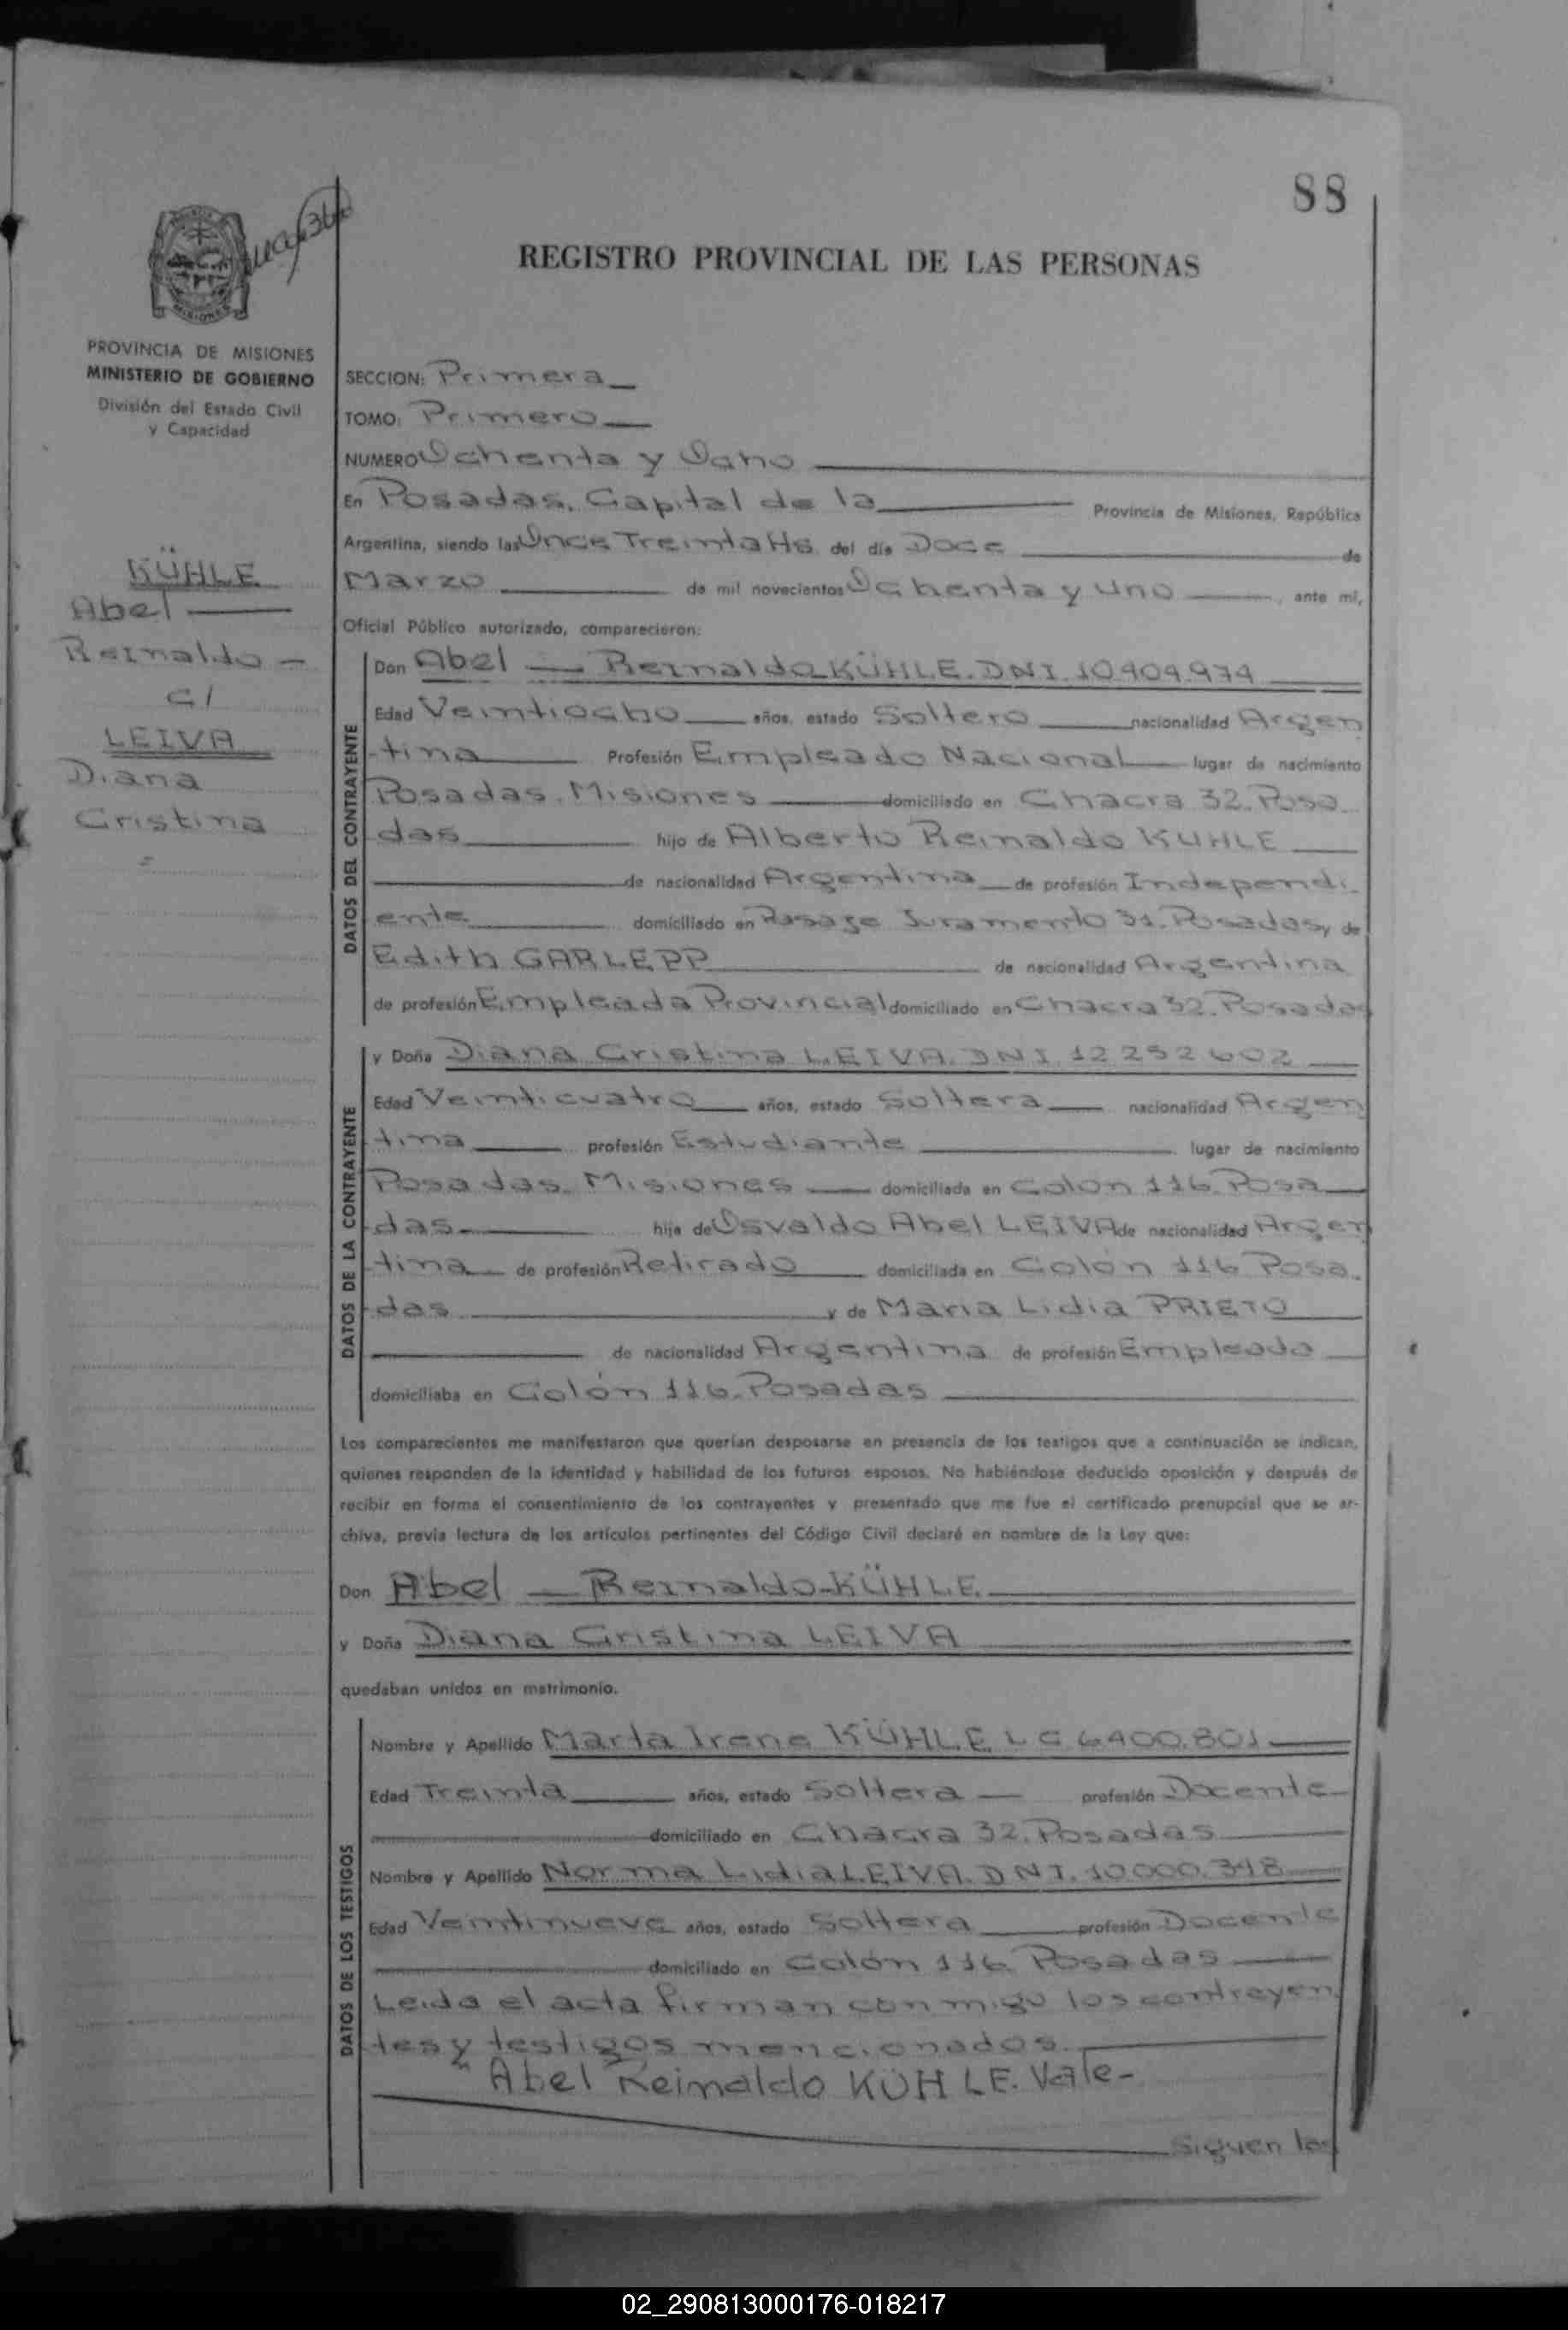 88
REGISTRO PROVINCIAL DE LAS PERSONAS
PROVINCIA DE MISIONES
MINISTERIO DE GOBIERNO
División del Estado Civil
y Capacidad
KÜHLE
Abel
Reinaldo -
c/
LEIVA
Diana
Cristina
SECCION: Primera
TOMO: Primero
NUMERO Ochenta y Ocho
En Posadas, Capital de la Provincia de Misiones, República
Argentina, siendo las Once Treinta Hs. del día Doce de
Marzo de mil novecientos Ochenta y Uno, ante mí,
Oficial Público autorizado, comparecieron:
DATOS DEL CONTRAYENTE
Don Abel — Reinaldo KÜHLE. DNI. 10.909.974
Edad Veintiocho años, estado Soltero nacionalidad Argen
tina Profesión Empleado Nacional lugar de nacimiento
Posadas. Misiones domiciliado en Chacra 32. Posa
das hijo de Alberto Reinaldo KUHLE
de nacionalidad Argentina de profesión Independi
ente domiciliado en Pasaje Juramento 31. Posadas y de
Edith GARLEPP de nacionalidad Argentina
de profesión Empleada Provincial domiciliado en Chacra 32. Posadas
DATOS DE LA CONTRAYENTE
y Doña Diana Cristina LEIVA. DNI. 12 252 602
Edad Veinticuatro años, estado Soltera nacionalidad Argen
tina profesión Estudiante lugar de nacimiento
Posadas. Misiones domiciliada en Colón 116. Posa
das hija de Osvaldo Abel LEIVA de nacionalidad Argen
tina de profesión Retirado domiciliada en Colón 116 Posa.
das y de Maria Lidia PRIETO
de nacionalidad Argentina de profesión Empleada
domiciliaba en Colón 116. Posadas
Los comparecientes me manifestaron que querían desposarse en presencia de los testigos que a continuación se indican,
quienes responden de la identidad y habilidad de los futuros esposos. No habiéndose deducido oposición y después de
recibir en forma el consentimiento de los contrayentes y presentado que me fue el certificado prenupcial que se ar-
chiva, previa lectura de los artículos pertinentes del Código Civil declaré en nombre de la Ley que:
Don Abel — Reinaldo KÜHLE
y Doña Diana Cristina LEIVA
quedaban unidos en matrimonio.
DATOS DE LOS TESTIGOS
Nombre y Apellido Marta Irene KÜHLE LC 6400.801
Edad Treinta años, estado Soltera — profesión Docente
domiciliado en Chacra 32. Posadas
Nombre y Apellido Norma Lidia LEIVA. DNI. 10.000.398
Edad Veintinueve años, estado Soltera profesión Docente
domiciliado en Colón 116 Posadas
Leida el acta firman conmigo los contrayen
tes y testigos mencionados.
" Abel Reinaldo KÜHLE. Vale-
Siguen las
02_290813000176-018217